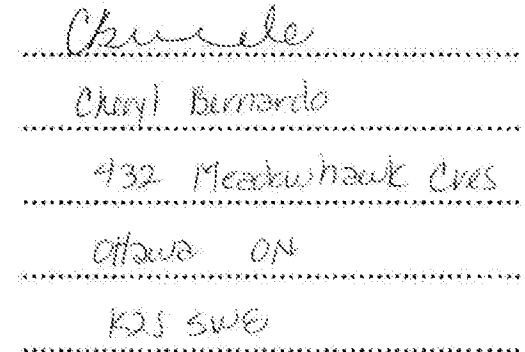 Cheryl Bernardo
432 Meadowhawk Cres
Ottawa ON
K2J